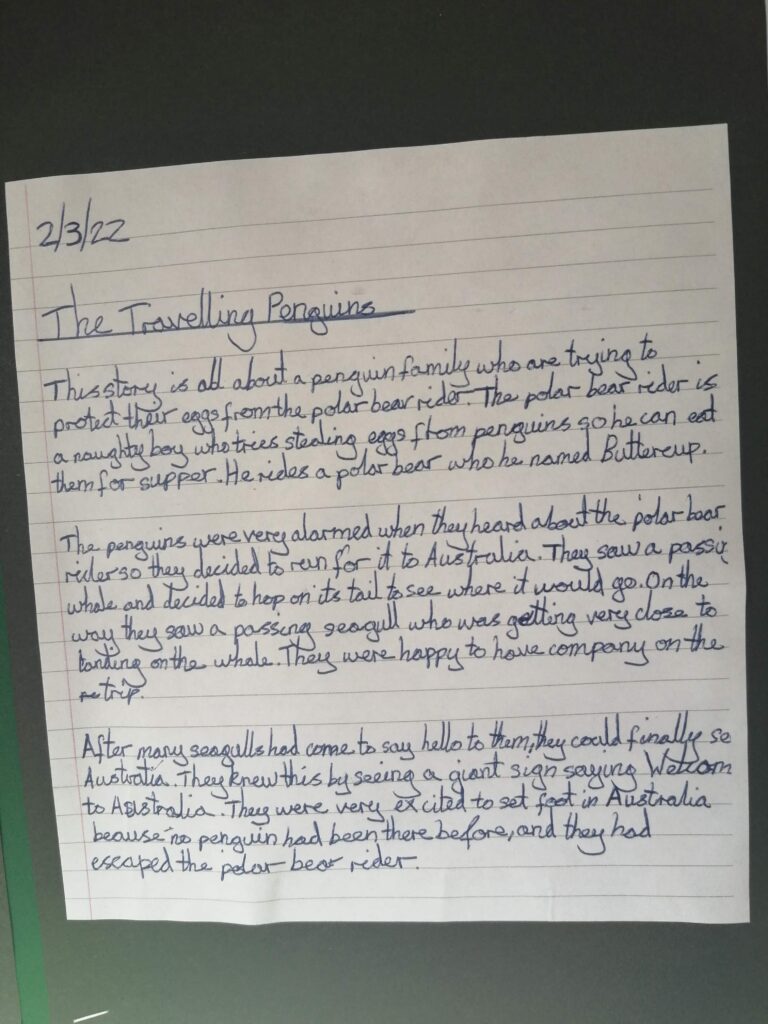 2/3/22
The Travelling Penguins
This story is all about a penguin family who are trying to
protect their eggs from the polar bear rider. The polar bear rider is
a naughty boy who tries stealing eggs from penguins so he can eat
them for supper. He rides a polar bear who he named Buttercup.
The penguins were very alarmed when they heard about the polar bear
rider so they decided to run for it to Australia. They saw a passi
whale and decided to hop on its tail to see where it would go. On the
way they saw a passing seagull who was getting very close to
landing on the whale. They were happy to have company on the
trip.
After many seagulls had come to say hello to them, they could finally se
Australia. They knew this by seeing a giant sign saying Welcom
to Australia. They were very excited to set foot in Australia
beause no penguin had been there before, and they had
escaped the polar bear rider.